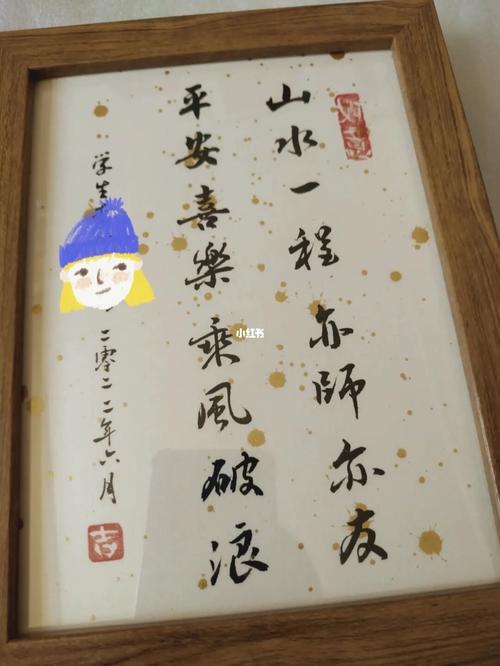 山水一程亦師亦友
平安喜樂乘風破浪
学生
二零二二年六月
吉
小红书